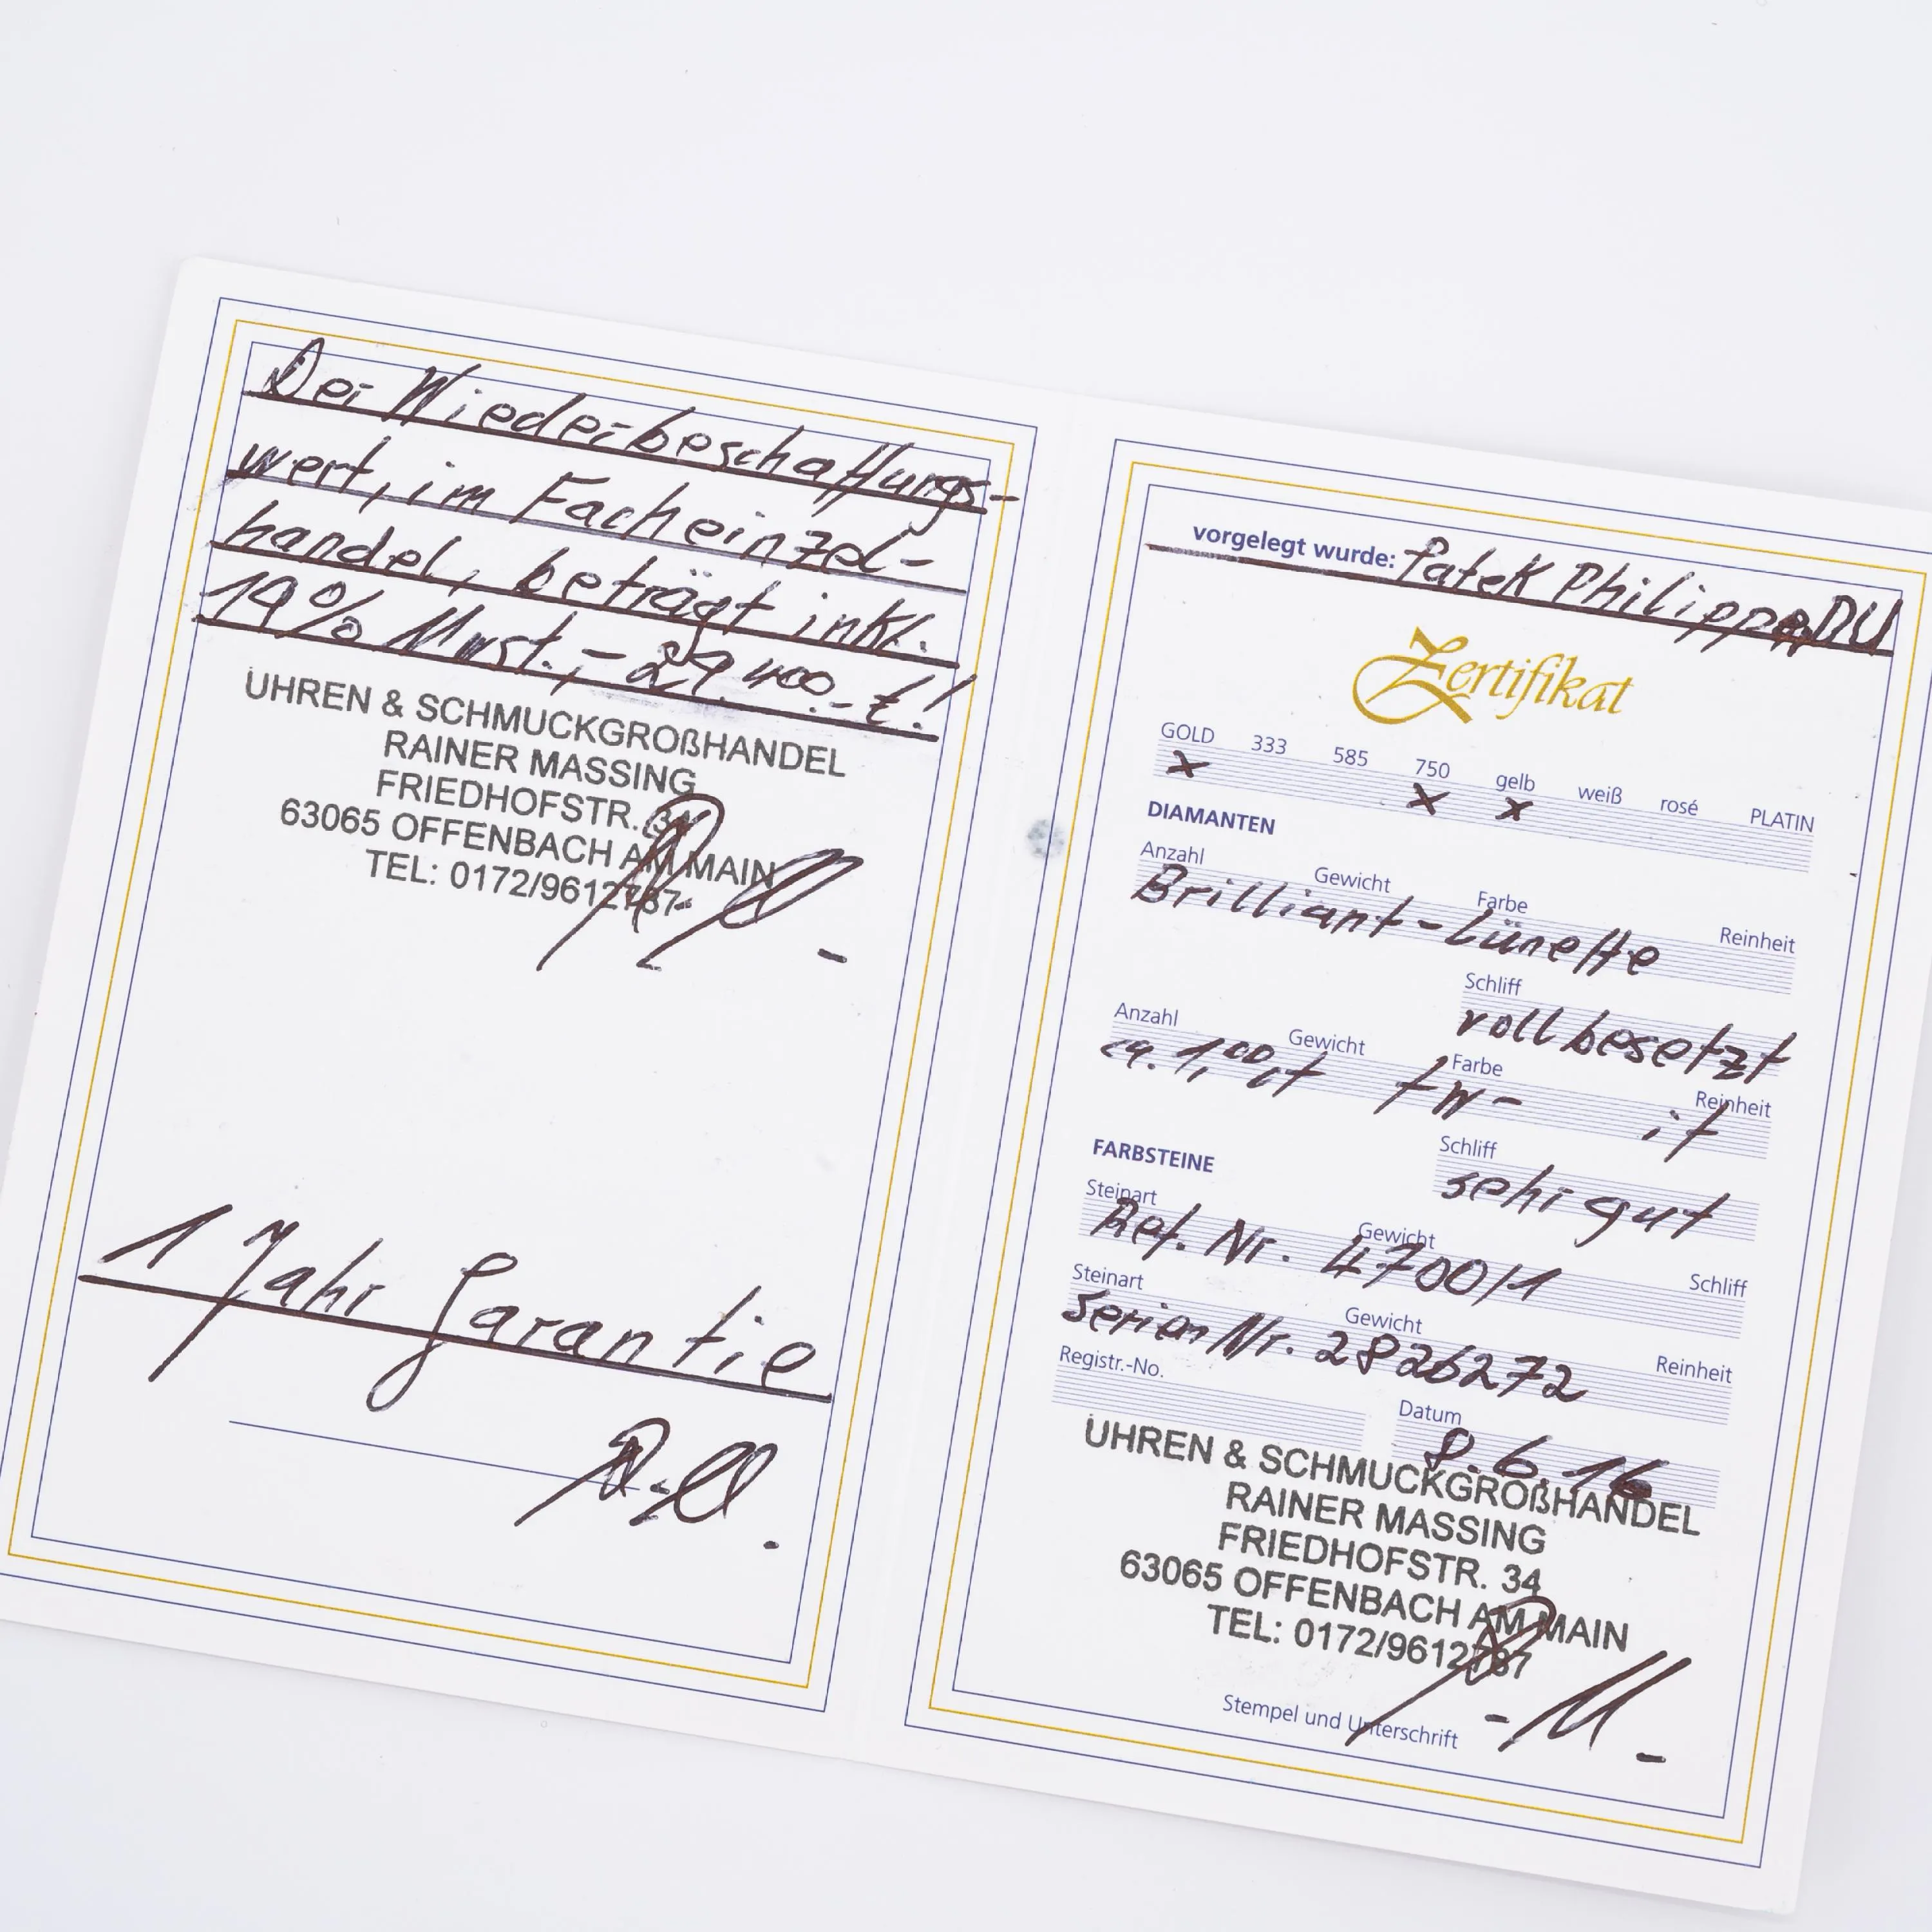 Der Wiederbeschaffungs-
wert, im Facheinzel-
handel, beträgt inkl.
19% Mwst.,- 29.400.- €!
UHREN & SCHMUCKGROßHANDEL
RAINER MASSING
FRIEDHOFSTR. 34
63065 OFFENBACH AM MAIN
TEL: 0172/9612787
1 Jahr Garantie
vorgelegt wurde: Patek Philipp DU
Zertifikat
GOLD 333 585 750 gelb weiß rosé PLATIN
x x x
DIAMANTEN
Anzahl Gewicht Farbe Reinheit
Brilliant-Lünette
Schliff
voll besetzt
Anzahl Gewicht Farbe Reinheit
ca. 1,00 ct fw- if
Schliff
sehr gut
FARBSTEINE
Steinart Gewicht Schliff
Ref. Nr. 4700/1
Steinart Gewicht Reinheit
Serien Nr. 2826272
Registr.-No. Datum
8.6.16
UHREN & SCHMUCKGROßHANDEL
RAINER MASSING
FRIEDHOFSTR. 34
63065 OFFENBACH AM MAIN
TEL: 0172/9612787
Stempel und Unterschrift